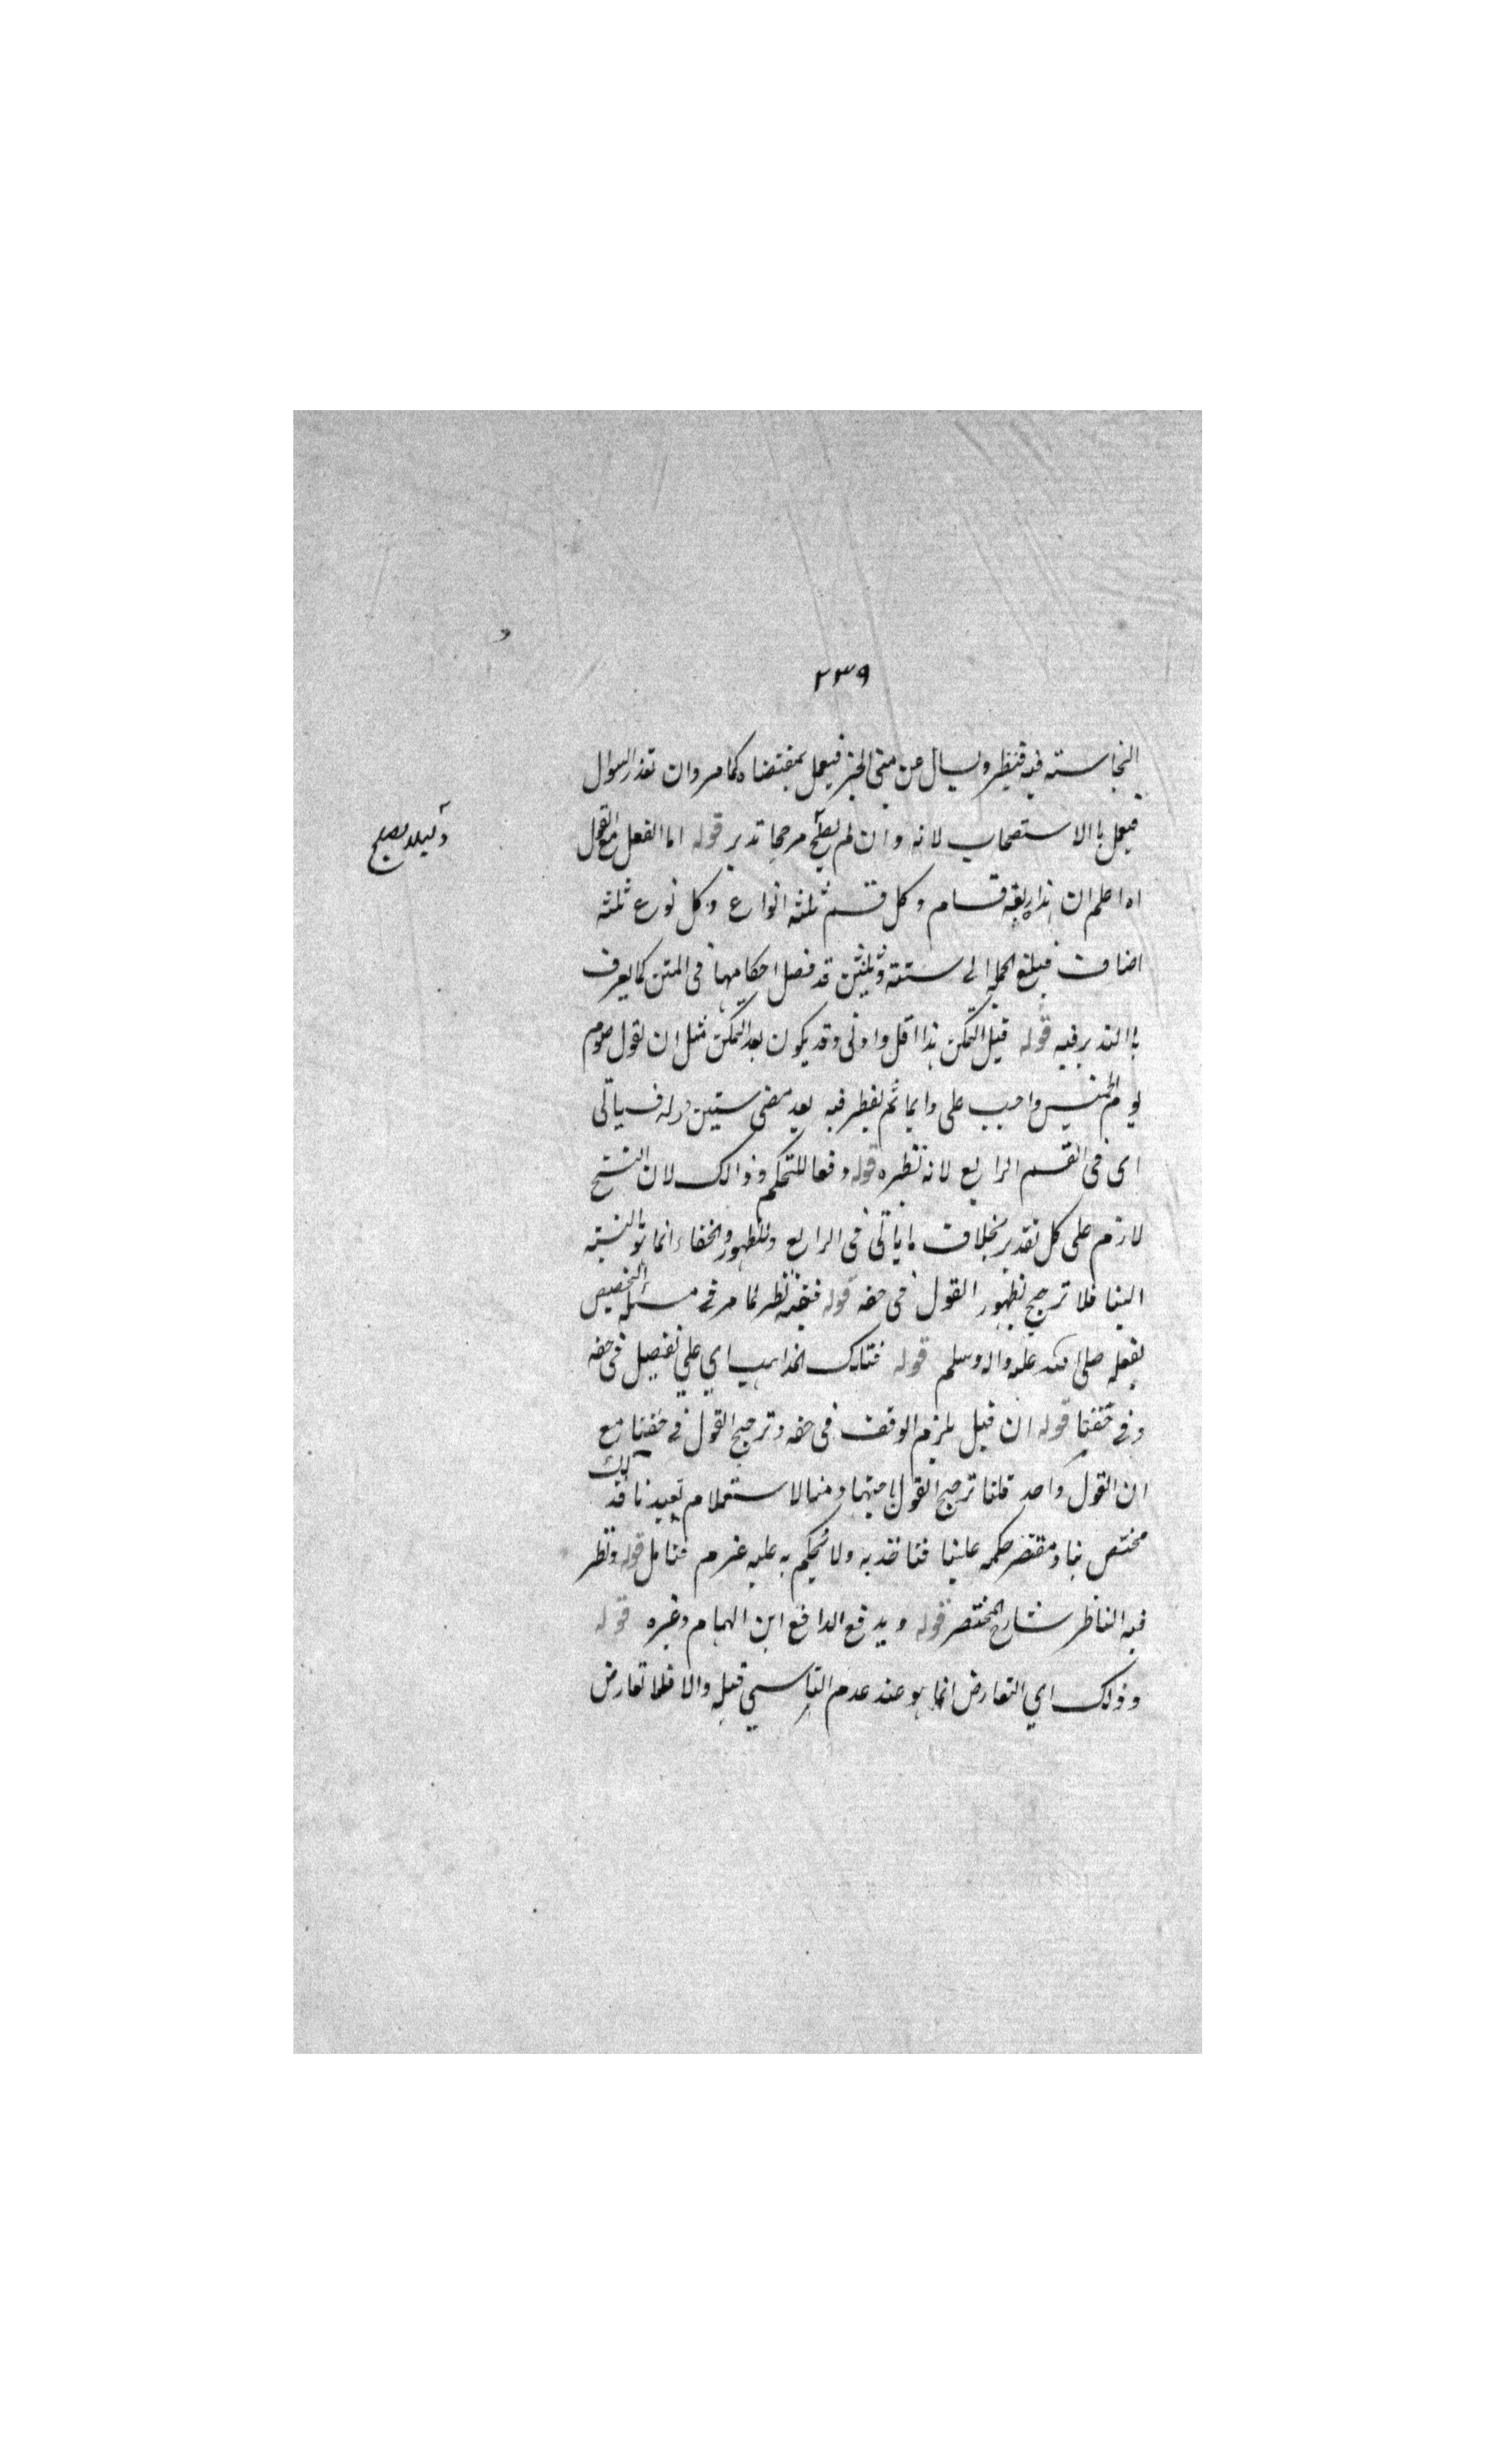 ٢٣٩
النجاسته فيه فينظر ويسال عن مبنى الخبر فيعمل بمقتضاه كمامر وان تعذر السوال
فيعمل باالاستصحاب لانه وان لم يصلح مرجحا تدبر قوله اما الفعل مع القول
دليلا يصلح
اه اعلم ان هذا اربعة اقسام وكل قسم ثلثه انواع وكل نوع ثلثه
اضاف فبلغ الجمله الى ستته وثلثين قد فصل احكامها فى المتن كما يعرف
باالتدبر فيه قوله قبل التمكن هذا اقل واولى وقد يكون بعد التمكن مثل ان يقول صوم
يوم الخميس واجب على دايما ثم يفطر فيه بعد مضى ستين قوله فسياتى
اى فى القسم الرابع لانه نظيره قوله دفعا للتحكم وذالك لان النسخ
لازم على كل تقدير بخلاف ما ياتى فى الرابع والظهور والخفاء انما هو بالنسبته
الينا فلا ترجيح بظهور القول فى حقه قوله ففيه نظر لما مر فى مسئله التخصيص
بفعله صلى الله عليه واله وسلم قوله فتلك المذاهب اي علي تفصيل فى حقه
وفي حقنا قوله ان قيل يلزم الوقف فى حقه وترجيح القول في حقنا مع
ان القول واحد قلنا ترجيح القول لامتها منا لاستعلام تعبدنا فذلك
مختص بنا ومقتصر حكمه علينا فناخذ به ولا نحكم به عليه عزم فتامل قوله ونظر
فيه الناظر شارح المختصر قوله ويدفع الدافع ابن الهمام وغيره قوله
وذلك اي التعارض انما هو عند عدم التاسي قبله والا فلا تعارض